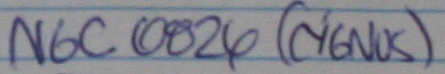 NGC 6826 (CYGNUS)